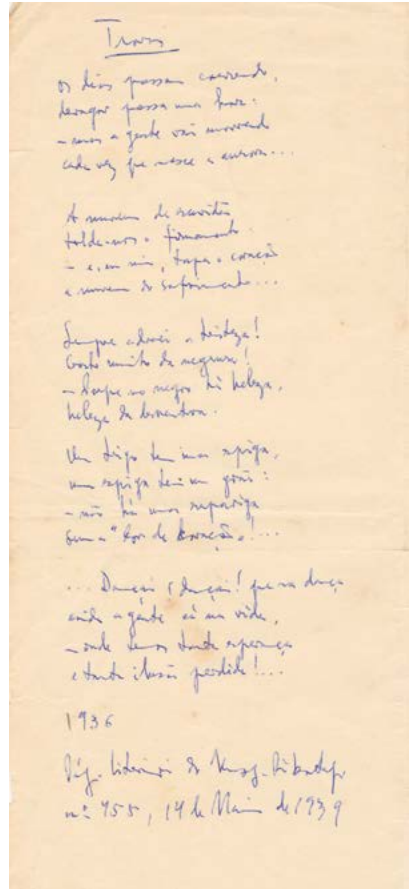 Trovas
Os dias passam correndo,
devagar passa uma hora:
– mas a gente vai morrendo
cada vez que nasce a aurora...
A nuvem da escuridão
tolda-nos o firmamento
– e, em mim, tapa o coração
a nuvem do sofrimento...
Sempre adorei a tristeza!
Gosto muito da negrura!
– Porque no negro há beleza,
beleza da
Um trigo tem uma espiga,
uma espiga tem um grão:
– não há uma rapariga
sem a "dor de coração"!...
... Dançai! dançai! que na dança
anda a gente e a vida,
– onde temos tanta esperança
e tanta ilusão perdida!...
1936
Pág. Literária do
nº 755, 14 de Maio de 1939